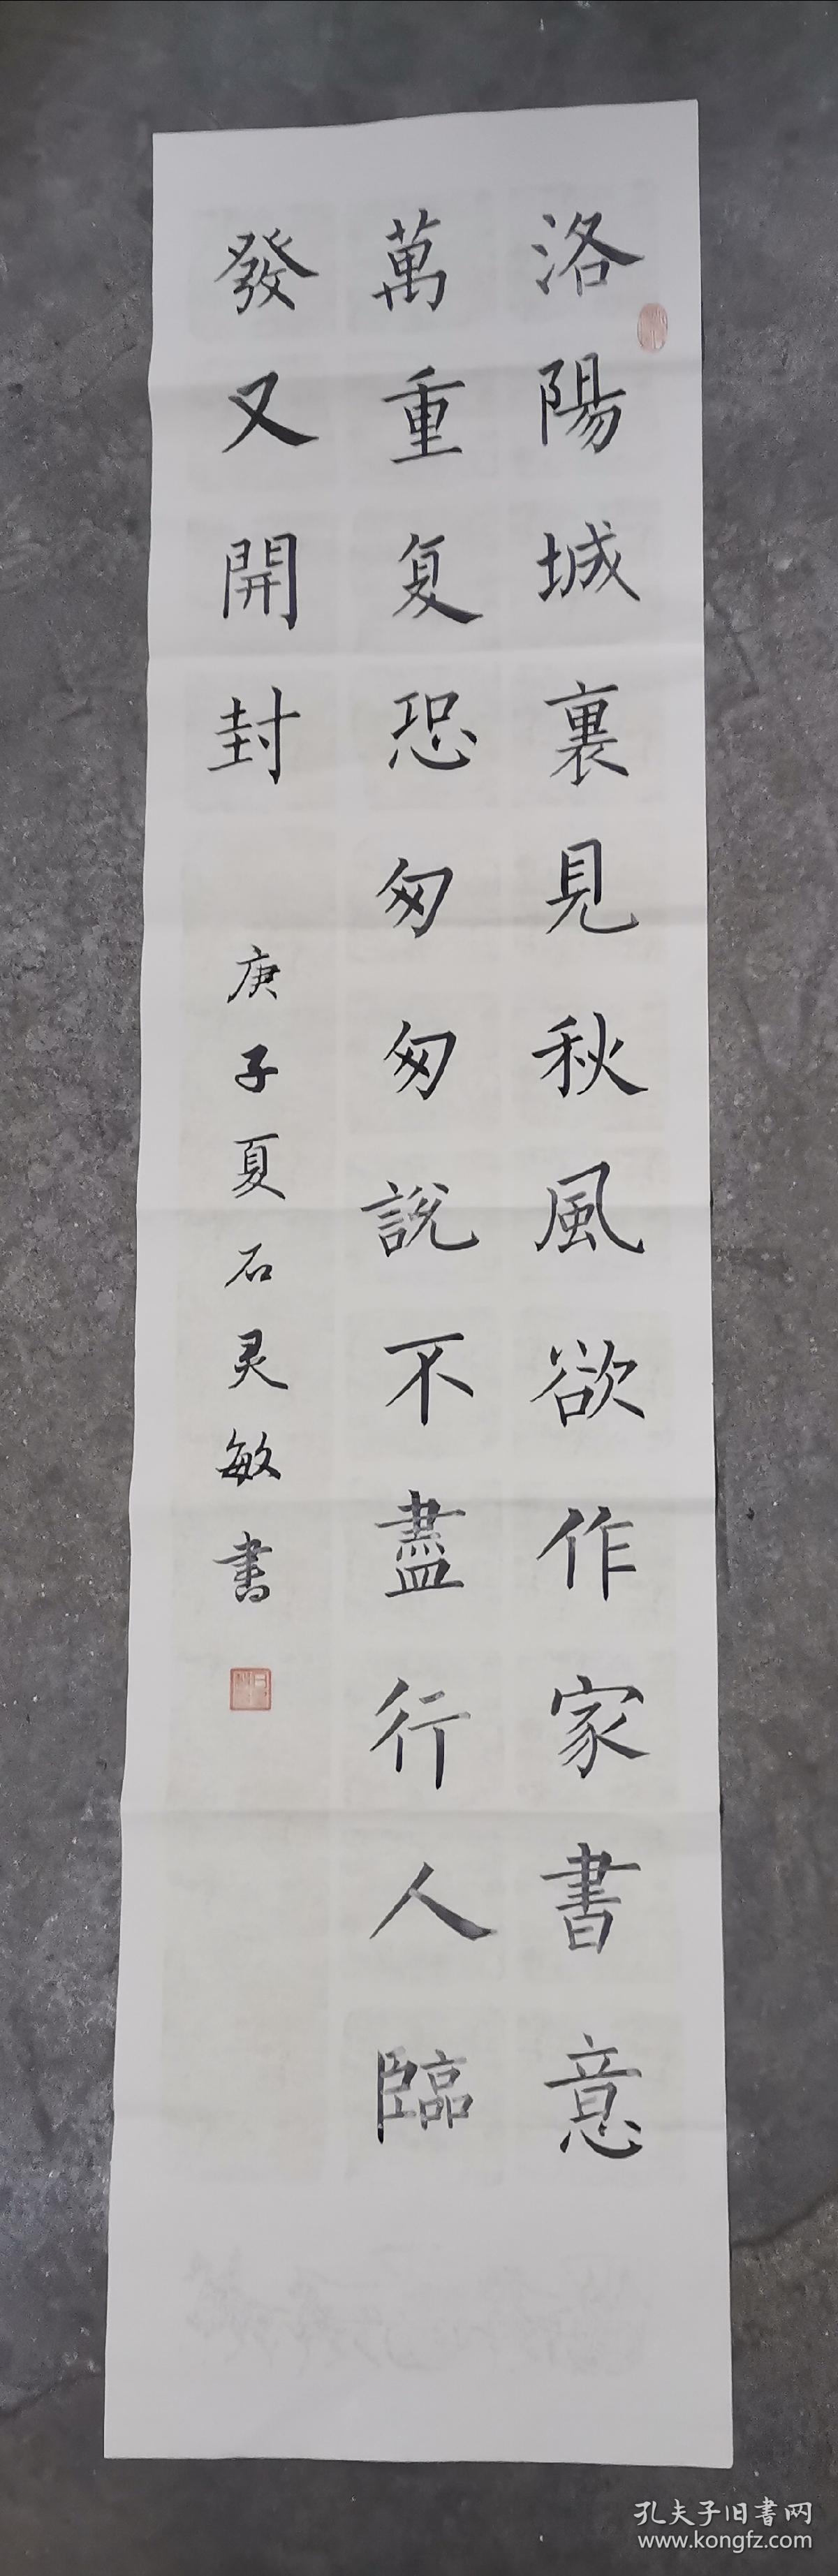 洛陽城裏見秋風欲作家書意
萬重复恐匆匆說不盡行人臨
發又開封
庚子夏石灵敏書
孔夫子旧書网
www.kongfz.com